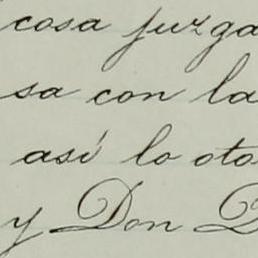 cosa juzga
sa con la
así lo oto
y Don